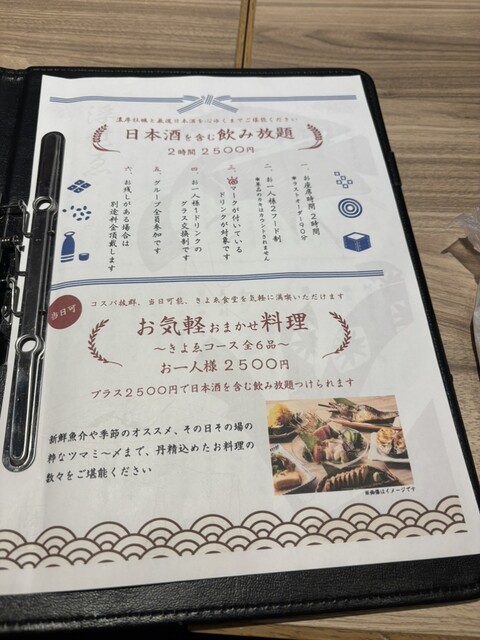 濃厚牡蠣と厳選日本酒を心ゆくまでご堪能ください
日本酒を含む飲み放題
2時間 2500円
一、お座席時間2時間
※ラストオーダー90分
二、お一人様2フード制
※単品のカキはカウントされません
三、マークが付いている
ドリンクが対象です
四、お一人様1ドリンクの
グラス交換制です
五、グループ全員参加です
六、お残しがある場合は
別途料金頂戴します
当日可
コスパ抜群、当日可能、きよゑ食堂を気軽に満喫いただけます
お気軽おまかせ料理
～きよゑコース 全6品～
お一人様 2500円
プラス2500円で日本酒を含む飲み放題つけられます
新鮮魚介や季節のオススメ、その日その場の
粋なツマミ〜〆まで、丹精込めたお料理の
数々をご堪能ください
※画像はイメージです